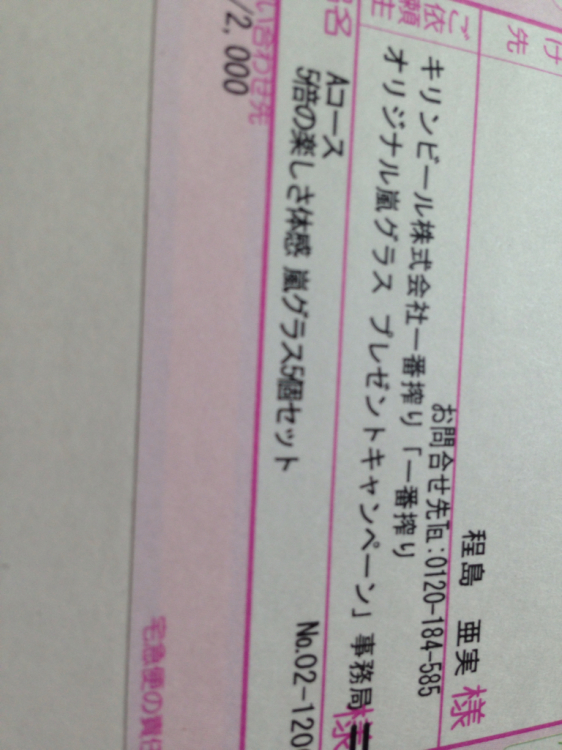 け
先
程島 亜実 様
お問合せ先℡:0120-184-585
ご依頼主
キリンビール株式会社一番搾り「一番搾り
オリジナル嵐グラス プレゼントキャンペーン」事務局 様
名
Aコース
5倍の楽しさ体感 嵐グラス5個セット
No.02-1200
い合わせ先
/2,000
宅急便の責任